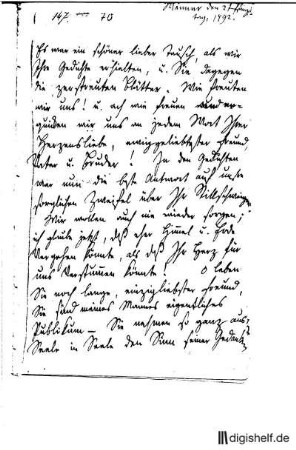 147. 70
Weimar den 27
1792.
Es war ein schöner lieber Tausch, als wir
Ihre Gedichte erhielten, u. Sie dagegen
die zerstreuten Blätter. Wie freuten
wir uns! u. ach wie freuen
wir uns an jedem Wort Ihrer
Herzensliebe, einziggeliebtester Freund
Vater u. Bruder! In den Gedichten
war nun die beste Antwort auf unsre
sorglichen Zweifel über Ihr Stillschweigen.
Wir wollen auch nie wieder sorgen;
ich glaube jetzt, daß eher Himmel u. Erde
vergehen könnte, als daß Ihr Herz für
uns verstummen könnte! O leben
Sie noch lange, einzigliebster Freund,
Sie sind meines Mannes eigentliches
Publikum — Sie nehmen so ganz aus
Seele in Seele den Sinn seiner Gedank
digishelf.de